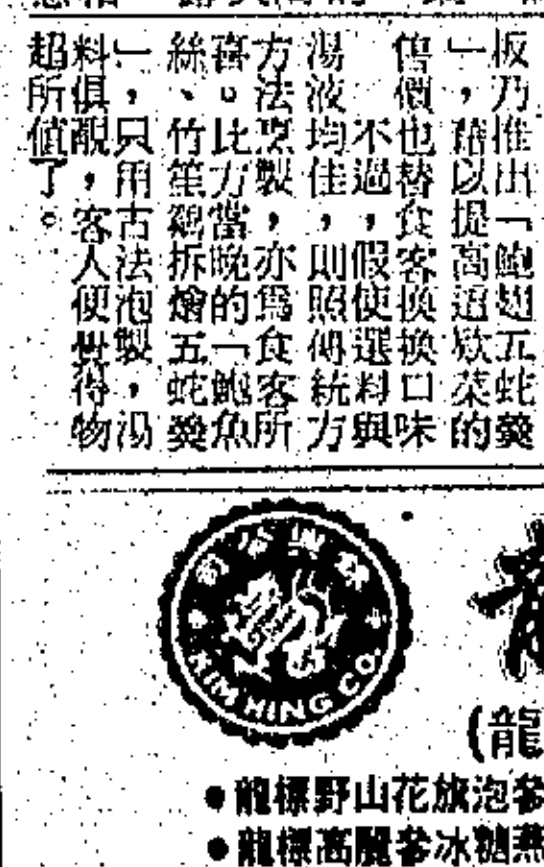 板乃推出「鮑翅五蛇羹
」，藉以提高這欵菜的
售價也替食客換換口味
不過，假使選料與
湯液均佳，則照傳統方
方法烹製，亦爲食客所
喜。比方當晚的「鮑魚
絲、竹笙鷄拆燴五蛇羹
」，只用古法泡製，湯
料俱靚，客人便覺得物
超所值了。
KIM HING CO.
(龍
●龍標野山花旗泡參
●龍標高麗參冰糖燕